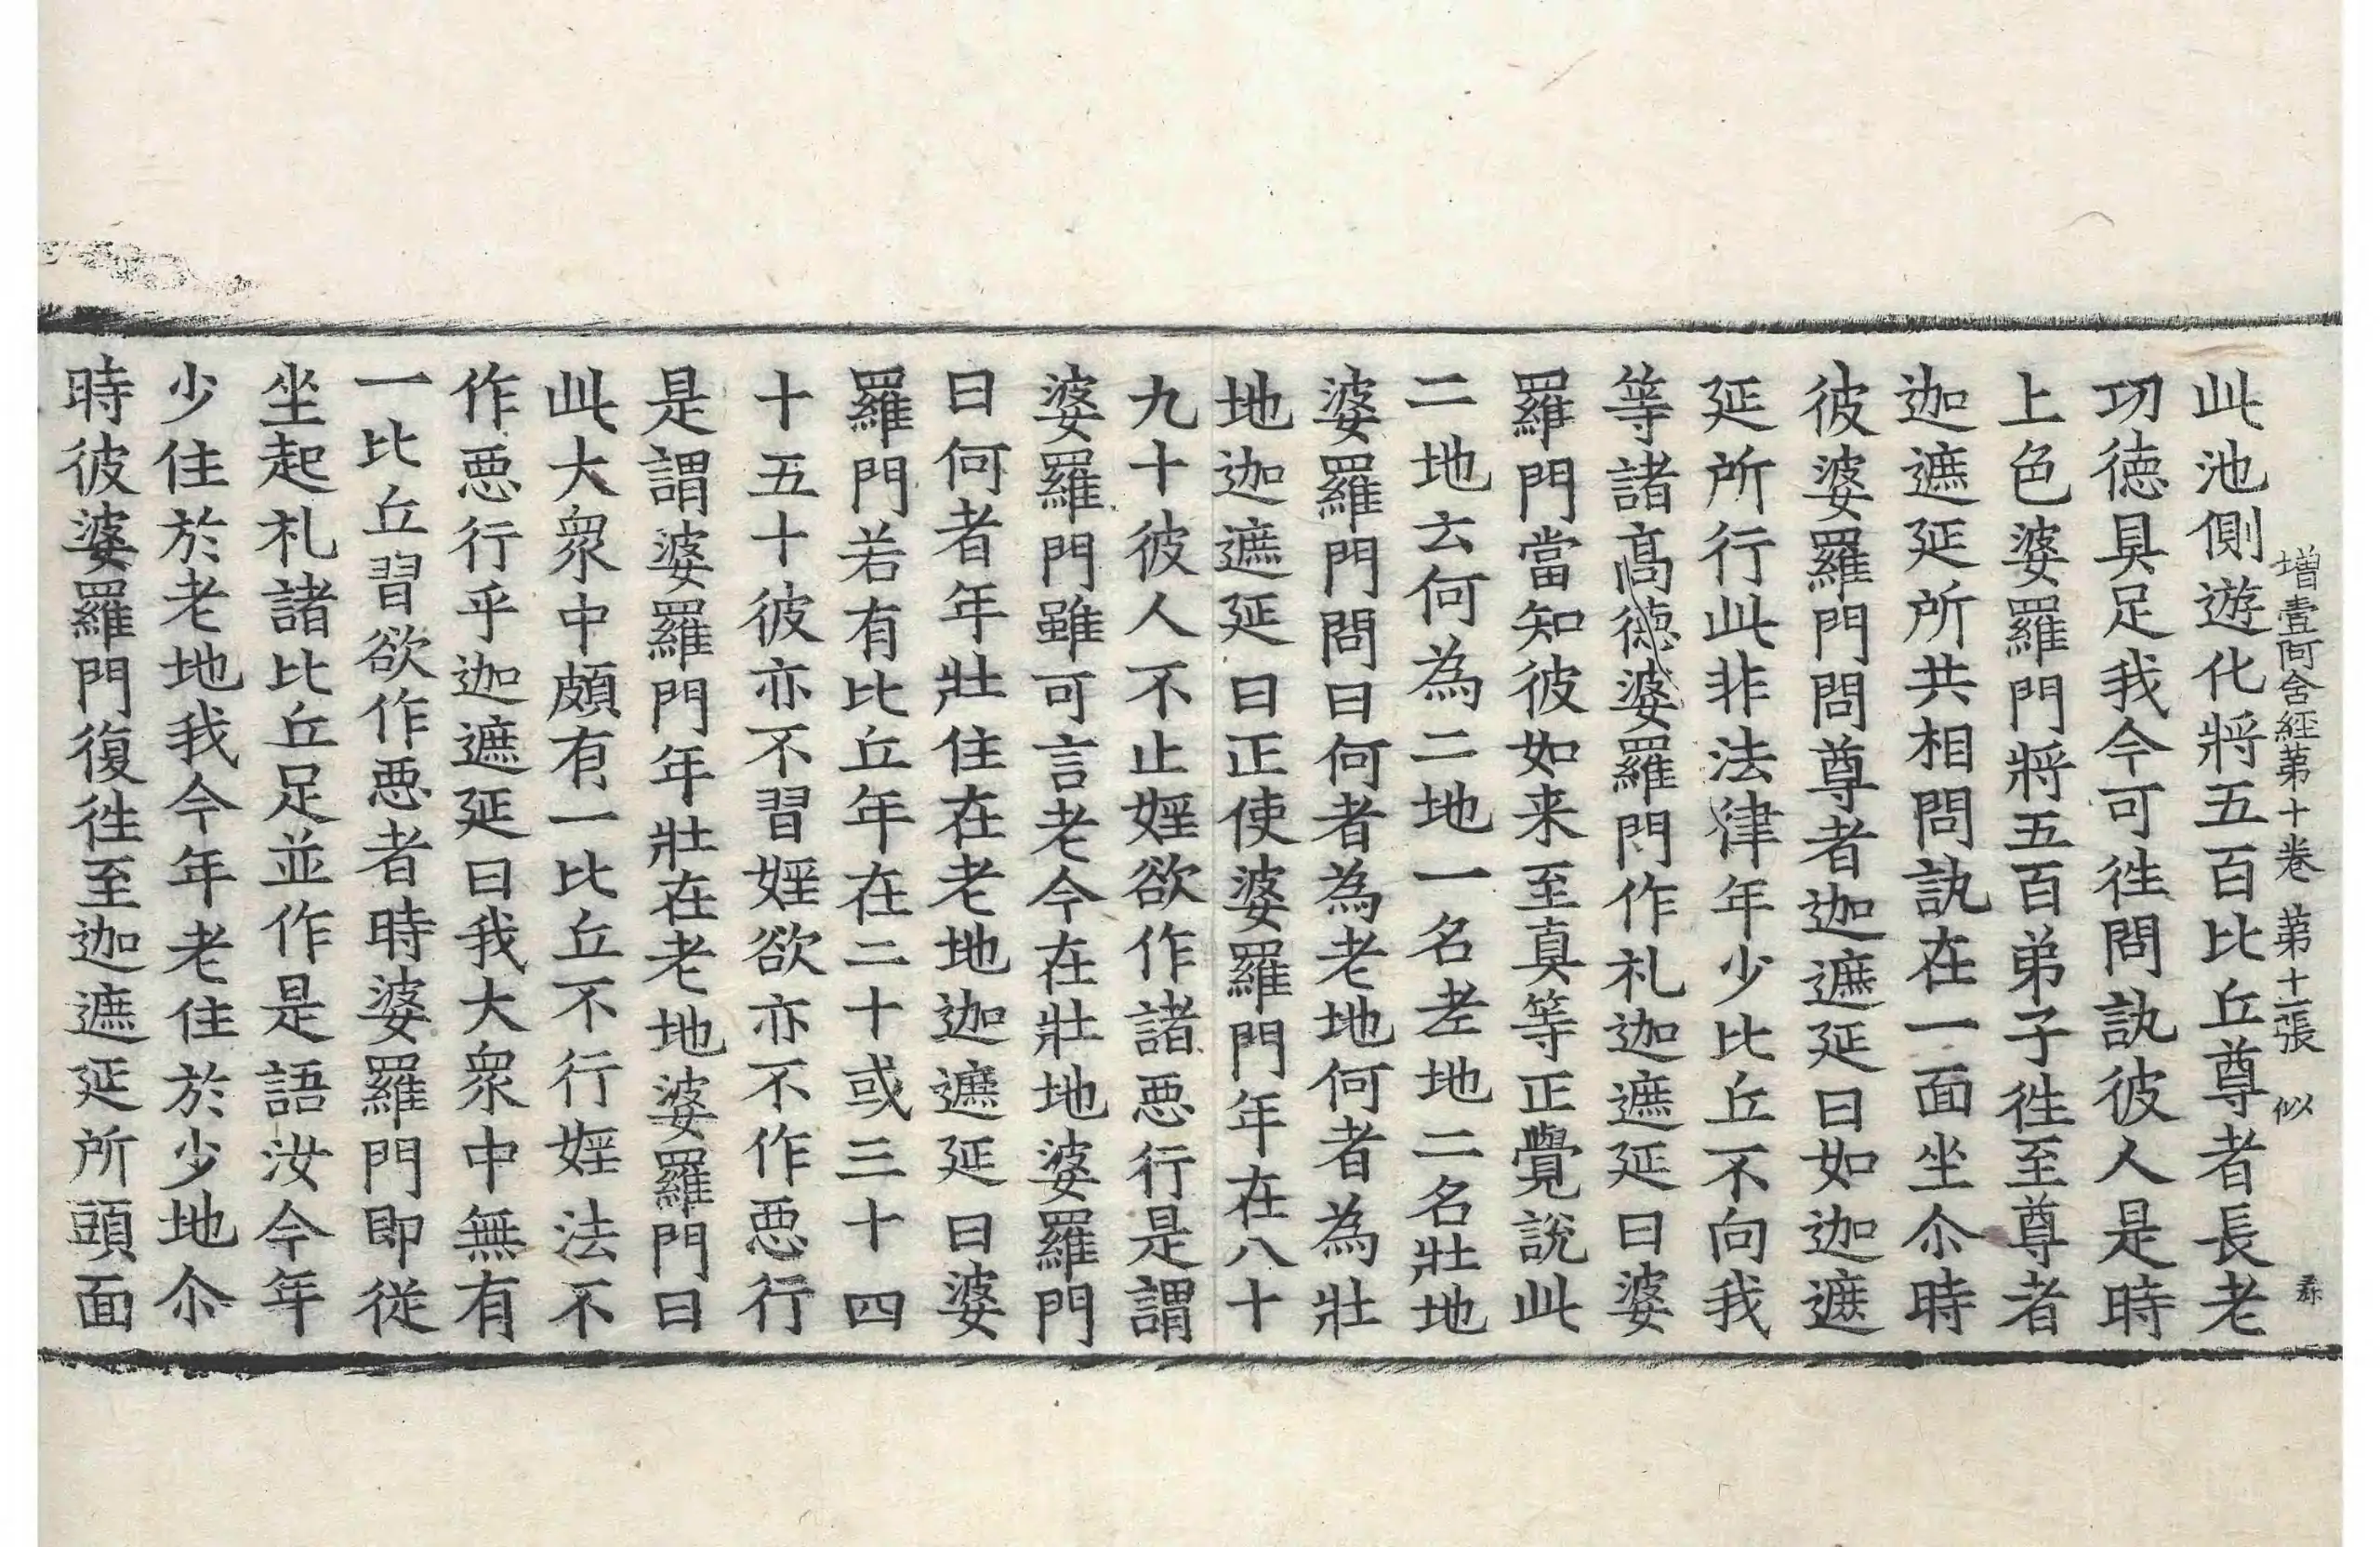 增壹阿含經苐十卷 苐十二張 似
此池側遊化將五百比丘尊者長老
功德具足我今可徃問訊彼人是時
上色婆羅門將五百弟子徃至尊者
迦遮延所共相問訊在一面坐尒時
彼婆羅門問尊者迦遮延曰如迦遮
延所行此非法律年少比丘不向我
等諸髙德婆羅門作礼迦遮延曰婆
羅門當知彼如来至真等正覺說此
二地云何為二地一名老地二名壯地
婆羅門問曰何者為老地何者為壯
地迦遮延曰正使婆羅門年在八十
九十彼人不止婬欲作諸惡行是謂
婆羅門雖可言老今在壯地婆羅門
曰何者年壯住在老地迦遮延曰婆
羅門若有比丘年在二十或三十四
十五十彼亦不習婬欲亦不作惡行
是謂婆羅門年壯在老地婆羅門曰
此大衆中頗有一比丘不行婬法不
作惡行乎迦遮延曰我大衆中無有
一比丘習欲作惡者時婆羅門即従
坐起礼諸比丘足並作是語汝今年
少住於老地我今年老住於少地尒
時彼婆羅門復徃至迦遮延所頭面